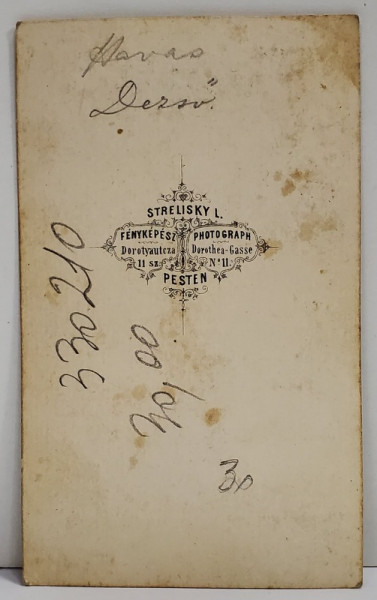 Havas
Dezső
STRELISKY L.
FÉNYKÉPÉSZ PHOTOGRAPH
Dorotyautcza Dorothea-Gasse
11 sz. No 11.
PESTEN
330210
30